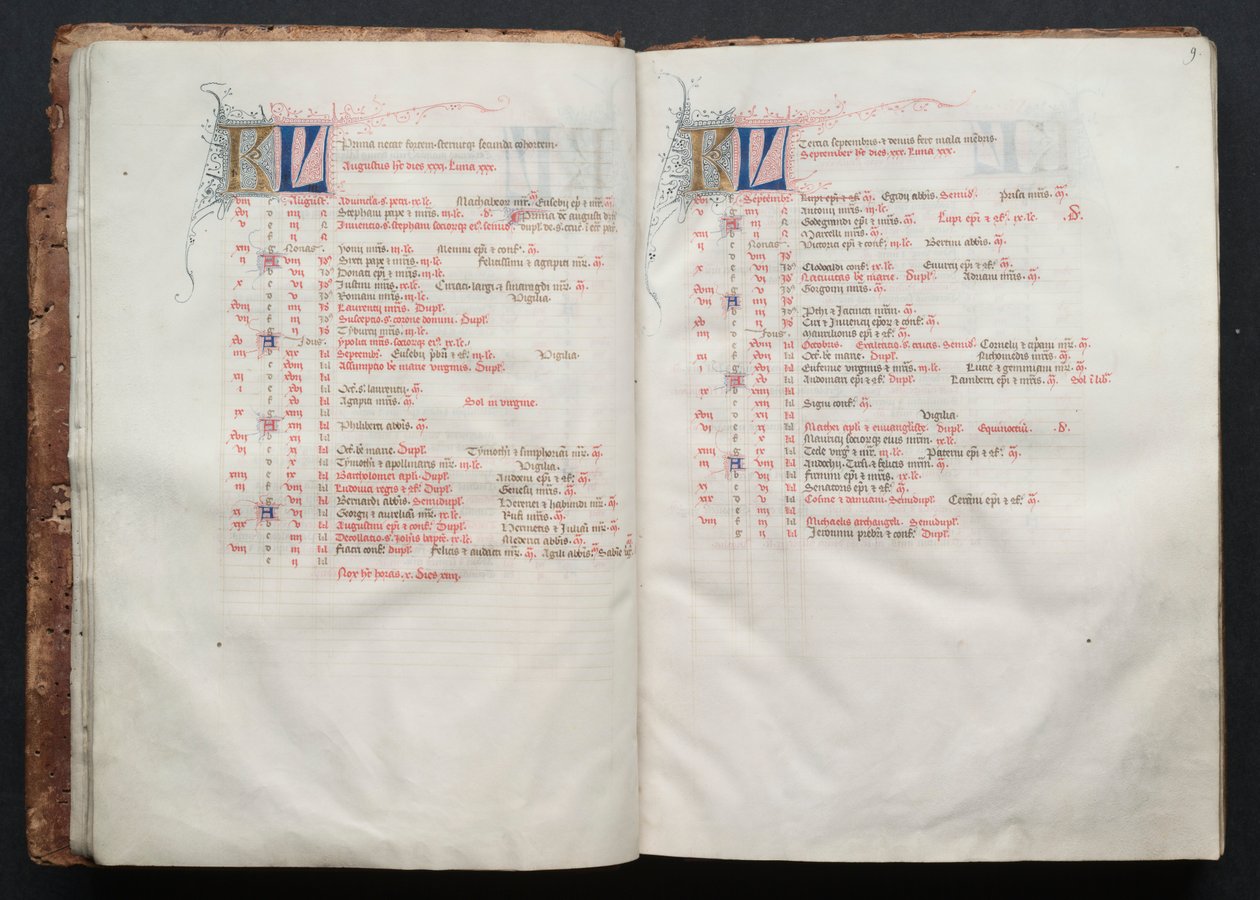 9.
KL
Prima necat fortem sternitque secunda cohortem.
Augustus hr dies xxxj. Luna xxx.
viii c August. Advincla. s. petri. ix. lc. Machabeor mr. m. Eusebii ep & mr. m.
xvi d iiii N Stephani pape & mris. iii. lc. .d. Prima de augusti dn
v e iii N Inventio. s. stephani sociorqz ei. semid. dupl.
f ii N
xiii g Nonas. Yonii mris. iii. lc. Memii epi & conf. m.
ii A viii Id Sixti pape & mris. iii. lc. Felicissimi & agapiti mr. m.
b vii Id Donati epi & mris. iii. lc.
x c vi Id Justini mris. ix. lc. Ciriaci. largi & smaragdi mr. m.
d v Id Romani mris. iii. lc. Vigilia.
xviii e iiii Id Laurentii mris. Dupl.
vii f iii Id Susceptio. s. corone domini. Dupl.
g ii Id Tyburcii mris. iii. lc.
xv A Idus. Ypoliti mris. sociorqz ei. ix. lc.
iiii b xix kl Septembr. Eusebii pbri & 9f. iii. lc. Vigilia.
c xviii kl Assumptio be marie virginis. Dupl.
xii d xvii kl
i e xvi kl Oct. s. laurentii. m.
f xv kl Agapiti mris. m. Sol in virgine.
ix g xiiii kl
A xiii kl Philiberti abbis. m.
xvii b xii kl
vi c xi kl Oct. be marie. Dupl. Tymothi & simphoriani mr. m.
d x kl Tymothi & apollinaris mr. iii. lc. Vigilia.
xiiii e ix kl Bartholomei apli. Dupl. Audoeni epi & 9f. m.
iii f viii kl Ludovici regis & 9f. Dupl. Genesii mris. m.
g vii kl Bernardi abbis. Semidupl. Herenei & habundi mr. m.
xi A vi kl Georgii & aurelian mr. ix. lc. Rufi mris. m.
xix b v kl Augustini epi & conf. Dupl. Hermetis & Juliani mr. m.
c iiii kl Decollatio. s. Johis baptie. ix. lc. Mederici abbis. m.
viii d iii kl Fiacri conf. dupl. Felicis & audacti mr. m. Agili abbis. m. Sabie vg.
e ii kl
Nox hr horas. x. Dies xiiii.
KL
Tercia septembris. & denus fert mala membris.
September hr dies. xxx. Luna xxx.
xvi f Septembr. Lupi epi & 9f. m. Egidii abbis. Semid. Prisci mris. m.
v g iiii N Antonii mris. iii. lc.
A iii N Godegrandi epi & mris. m. Lupi epi & 9f. ix. lc. .d.
xiii b ii N Marcelli mris. m.
ii c Nonas. Victoria epi & conf. iii. lc. Bertini abbis. m.
d viii Id
x e vii Id Clodoaldi conf. ix. lc. Euurcii epi & 9f. m.
f vi Id Nativitas be marie. Dupl. Adriani mris. m.
xviii g v Id Gorgonii mris. m.
vii A iiii Id
b iii Id Pthi & Jacincti mrm. m.
xv c ii Id Ciri & Inventii epor & conf. m.
iiii d Idus. Maurilionis epi & 9f. m.
e xviii kl Octobris. Exaltatio. s. crucis. Semid. Cornelii & cipani mr. m.
xii f xvii kl Oct. be marie. Dupl. Nichomedis mris. m.
i g xvi kl Eufemie virginis & mris. iii. lc. Lucie & geminiani mr. m.
A xv kl Audomari epi & 9f. Dupl. Lamberti epi & mris. m. Sol i lib.
ix b xiiii kl
c xiii kl Signi conf. m.
xvii d xii kl Vigilia.
vi e xi kl Mathei apli & ewangliste. Dupl. Equinoctiu. .d.
f x kl Mauricii sociorqz eius mrm. ix. lc.
xiiii g ix kl Tecle virg & mr. iii. lc. Paterni epi & 9f. m.
iii A viii kl Andochii. Tirsi. & felicis mrm. m.
b vii kl Firmini epi & mris. ix. lc.
xi c vi kl Senatoris epi & 9f. m.
xix d v kl Cosme & damiani. Semidupl. Cerani epi & 9f. m.
e iiii kl
viii f iii kl Michaelis archangeli. Semidupl.
g ii kl Jeronimi presbri & conf. Dupl.